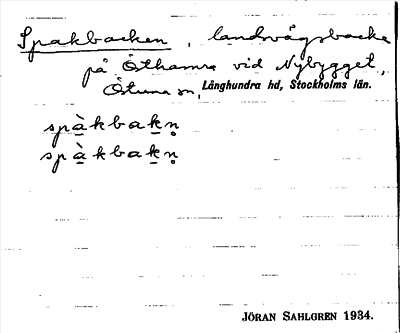 Spakbacken, landsvägsbacke
på Östhamra vid Nybygget,
Östuna sn, Långhundra hd, Stockholms län.
spàkbakn̥
spàkbakn̥
JÖRAN SAHLGREN 1934.